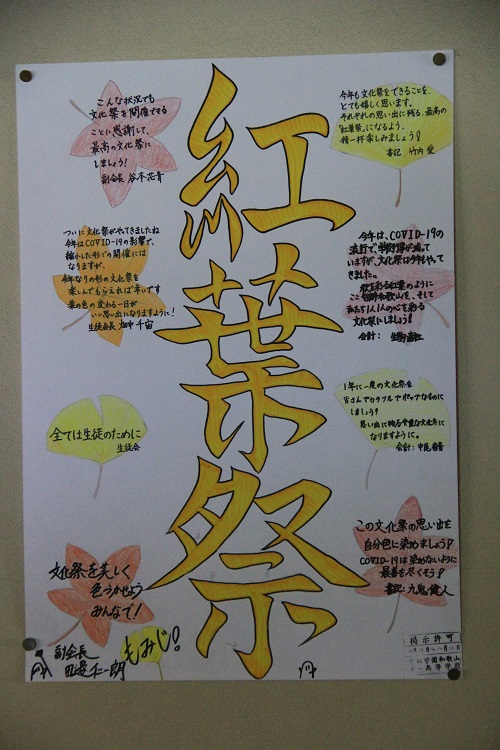 紅葉祭
こんな状況でも
文化祭を開催できる
ことに感謝して、
最高の文化祭に
しましょう!
副会長 谷本花音
今年も文化祭をできることを、
とても嬉しく思います。
それぞれの思い出に残る、最高の
「紅葉祭」になるよう、
精一杯楽しみましょう!
書記 竹内 愛
ついに文化祭がやってきましたね
今年はCOVID-19の影響で、
縮小した形での開催には
なりますが、
今年なりの形の文化祭を
楽しんでもらえれば幸いです
葉の色の変わる一日が
いい思い出になりますように!
生徒会長 畑中 千宙
今年は、COVID-19の
流行で、
いますが、文化祭は今年もやって
きました。
秋を彩る紅葉のように
ここ智辯和歌山を、そして
私たち1人1人の心を彩る
文化祭にしましょう!
会計:
全ては生徒のために
生徒会
1年に一度の文化祭を
皆さんでカラフルでポップなものに
しましょう!
思い出に残る貴重な文化祭に
なりますように。
会計:中尾
文化祭を美しく
色づかせよう
みんなで!
副会長
田邊仁一朗
もみじ!
この文化祭の思い出を
自分色に染めましょう!
COVID-19は染めないように
最善を尽くそう!
書記:九鬼 健人
掲示許可
学園和歌山
高等学校